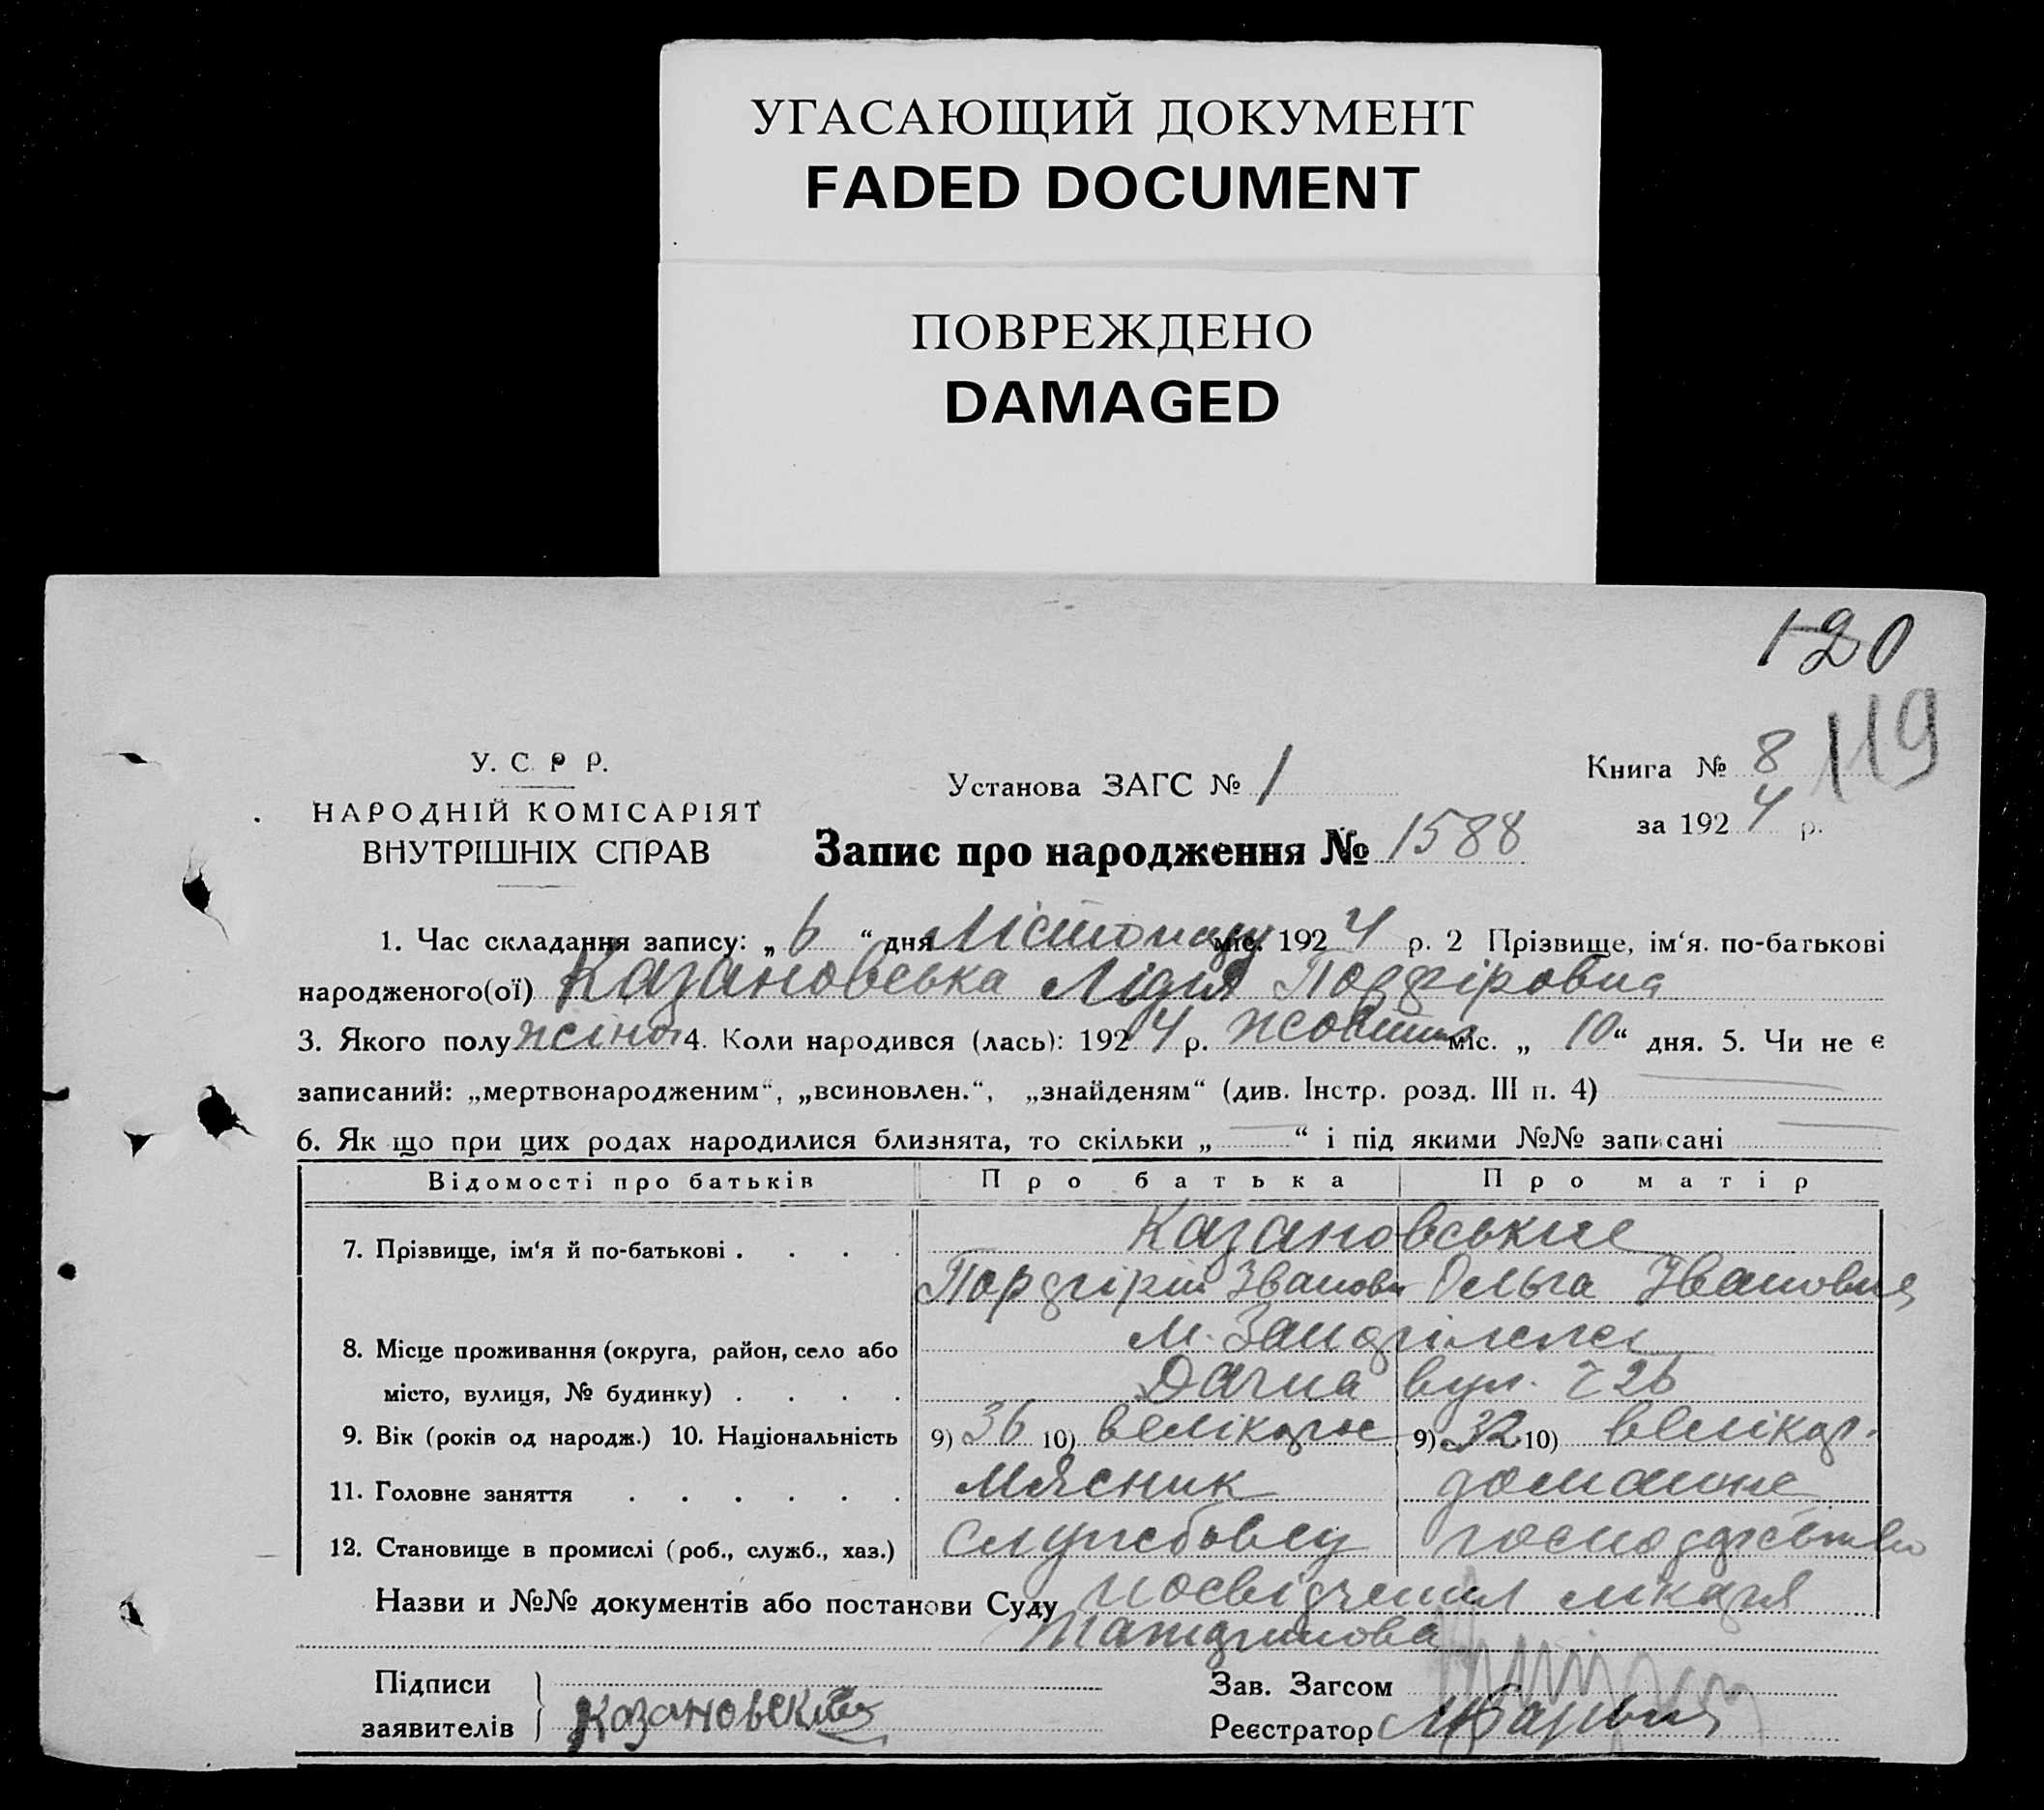 УГАСАЮЩИЙ ДОКУМЕНТ
FADED DOCUMENT
ПОВРЕЖДЕНО
DAMAGED
120
119
У. С. Р. Р.
НАРОДНІЙ КОМІСАРІЯТ
ВНУТРІШНІХ СПРАВ
Установа ЗАГС № 1
Книга № 8
за 1924 р.
Запис про народження № 1588
1. Час складання запису: „ 6 “ дня Лістопаду міс. 1924 р. 2 Прізвище, ім‘я. по-батькові
народженого(ої) Казановська Лідія Порфіровна
3. Якого полу жіноч 4. Коли народився (лась): 1924 р. Жовтня міс. „ 10 “ дня. 5. Чи не є
записаний: „мертвонародженим“, „всиновлен.“, „знайденям“ (див. Інстр. розд. III п. 4)
6. Як що при цих родах народилися близнята, то скільки „ — “ і під якими №№ записані —
Відомості про батьків Про батька Про матір
7. Прізвище, ім‘я й по-батькові . . . . Казановські
Порфірій Іванов Ольга Івановна
8. Місце проживання (округа, район, село або
місто, вулиця, № будинку) . . . . Дачна вул. № 26
9. Вік (років од народж.) 10. Національність 9) 36 10) велікорос 9) 32 10) велікор.
11. Головне заняття . . . . . . Мясник домашнє
12. Становище в промислі (роб., служб., хаз.) службовец господарство
Назви и №№ документів або постанови Суду посвідчення лікаря
Підписи
заявителів Казановский
Зав. Загсом
Реєстратор